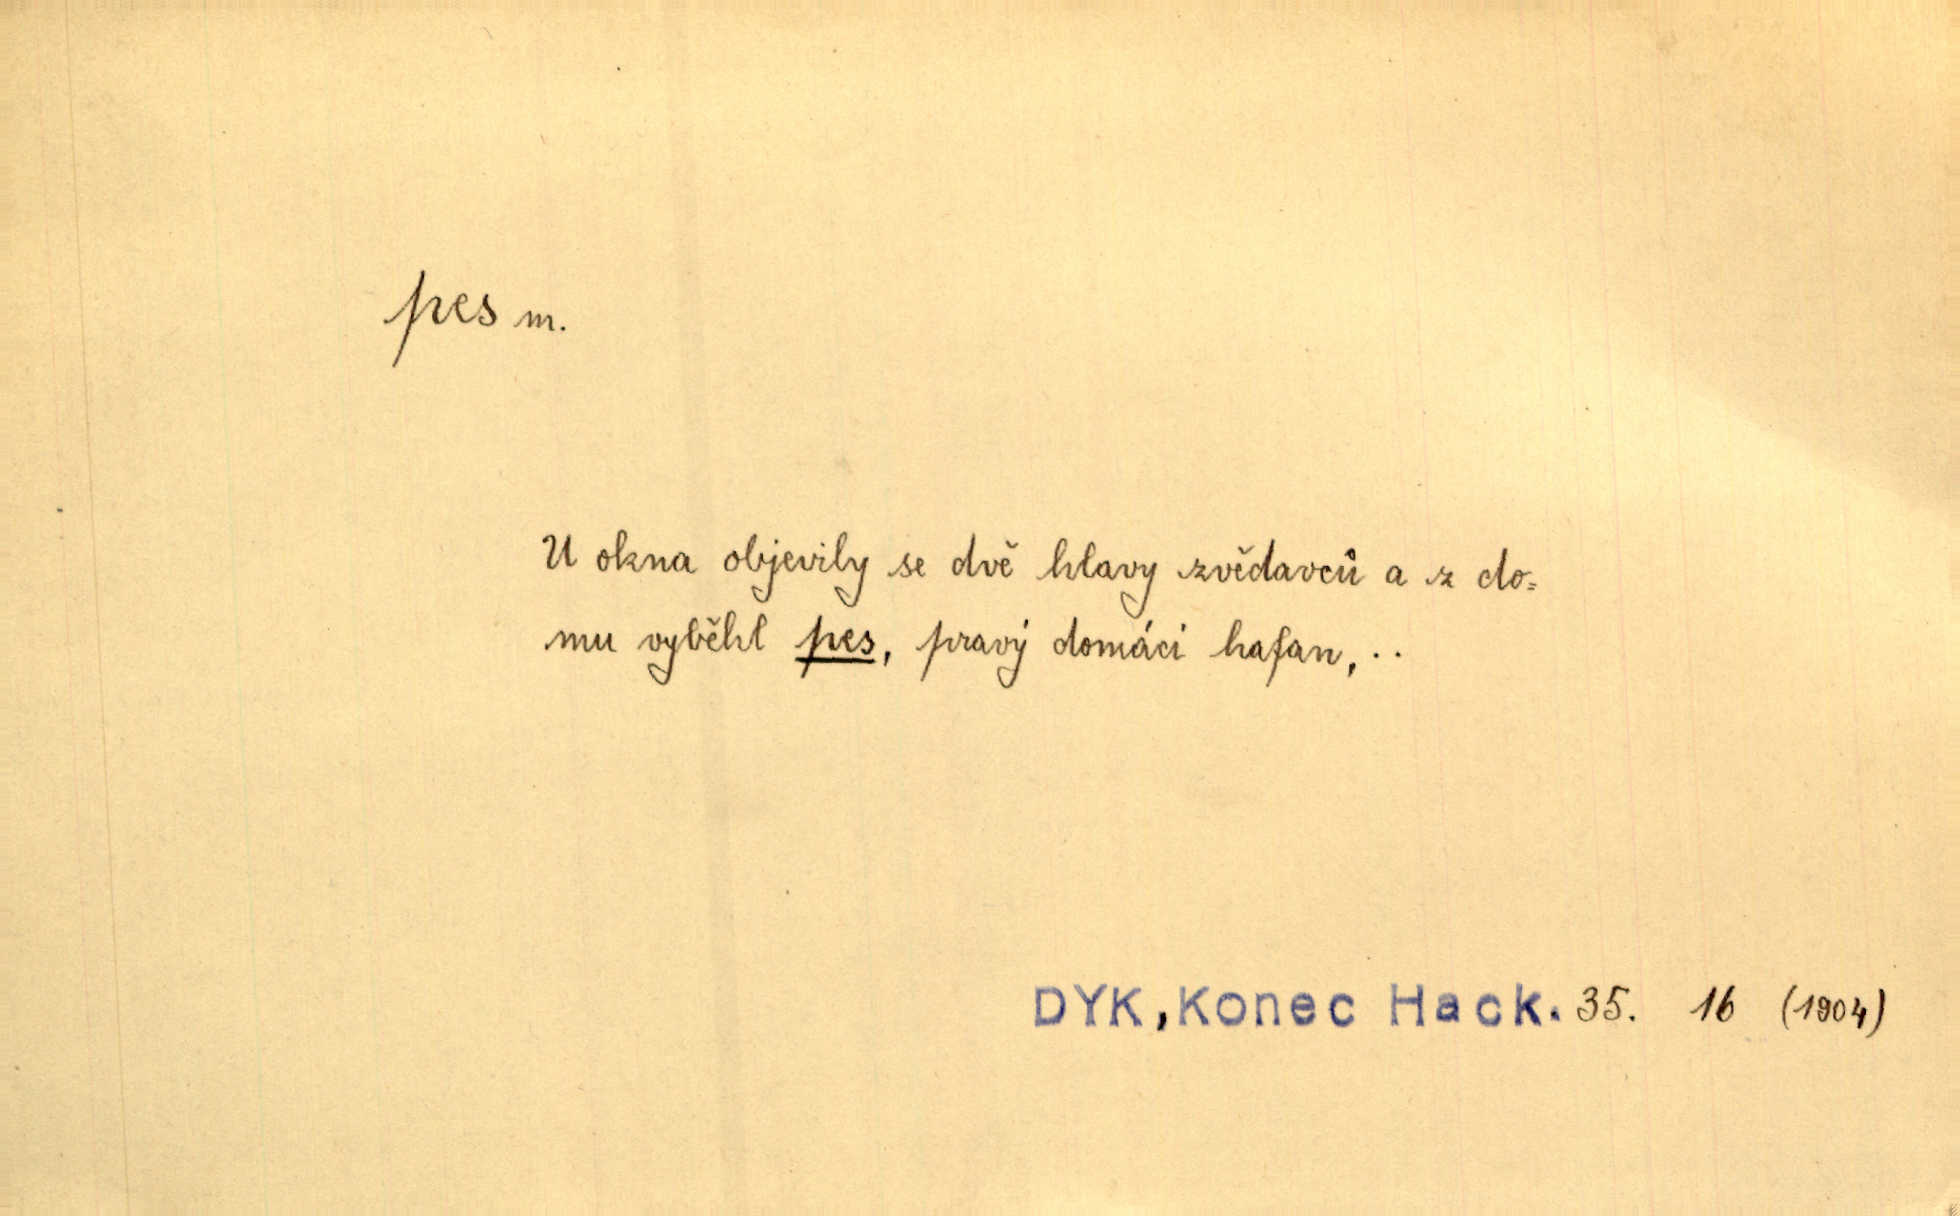 pes m.
U okna objevily se dvě hlavy zvědavců a z do=
mu vyběhl pes, pravý domácí hafan, ..
DYK, Konec Hack. 35. 16 (1904)